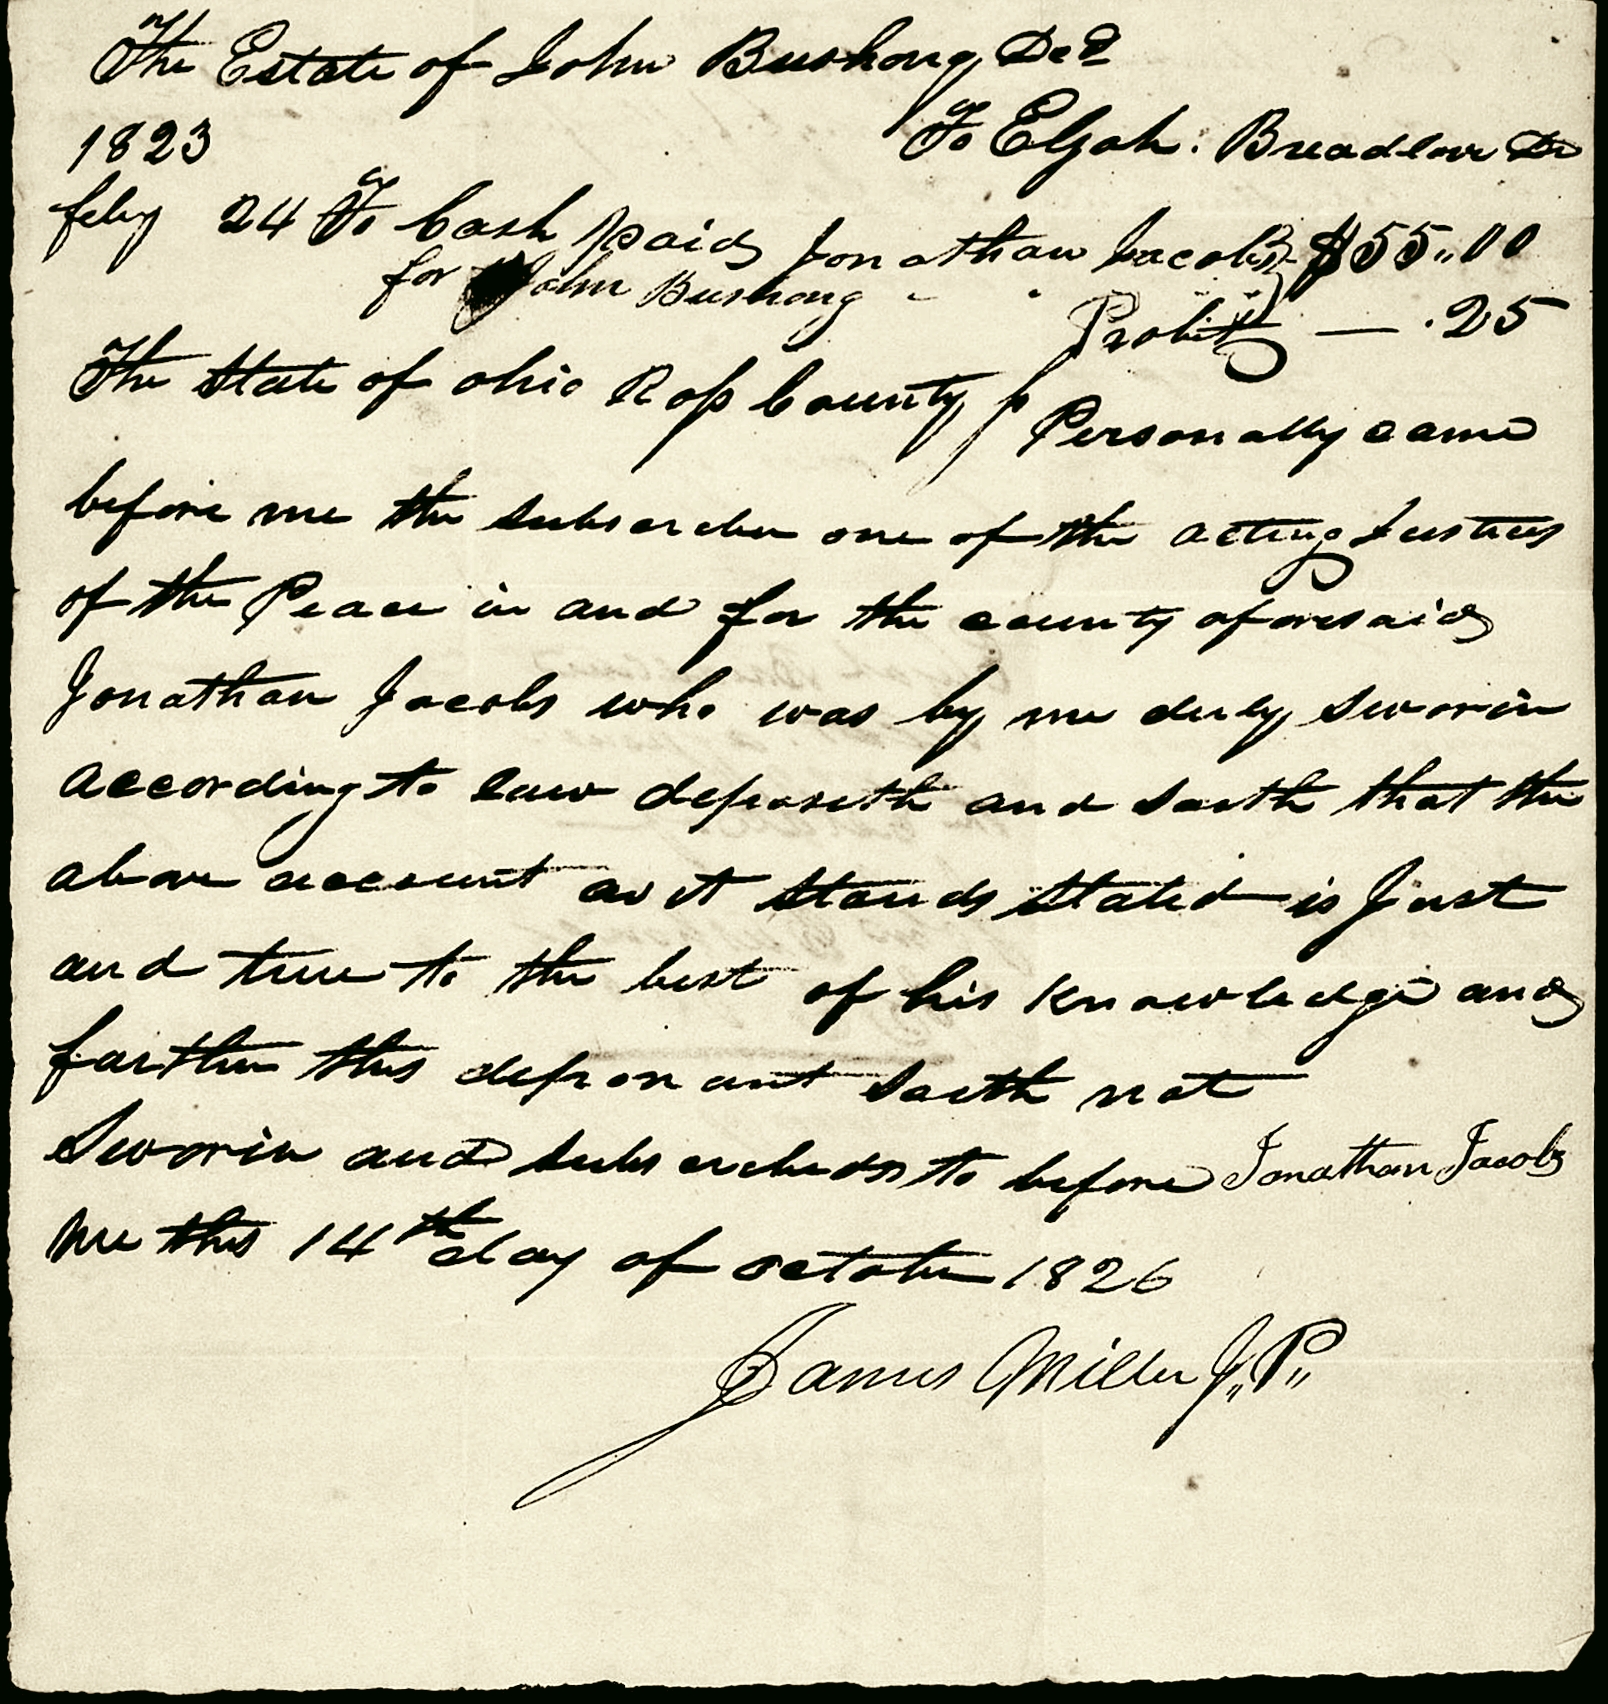 The Estate of John Bushong Decd
To Eljah: Breadlove Dr
1823
feby 24 To Cash paid Jonathan Jacobs $55.,00
for John Bushong
Probit — .25
The State of ohio Ross County ss Personally came
before me the subscriber one of the acting Justices
of the Peace in and for the county aforesaid
Jonathan Jacobs who was by me duly sworin
according to law deposeth and saith that the
above account as it stands stated is Just
and true to the best of his knowledge and
farther this deponant saith not
Sworin and subscribed to before Jonathan Jacobs
me this 14th day of october 1826
James Miller J,,P,,